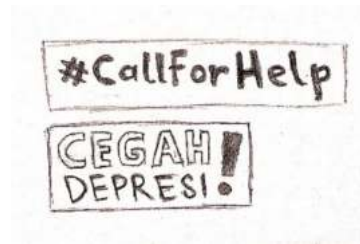 #CallForHelp
CEGAH
DEPRESI!